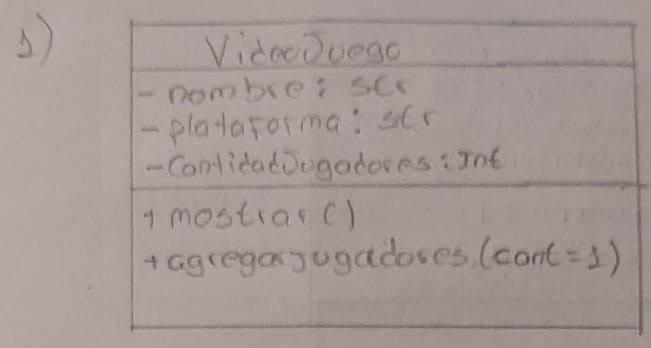 1)
VideoJuego
- nombre: str
- plataforma: str
- CantidadJugadores: Int
+ mostrar()
+ agregarJugadores (cant=1)